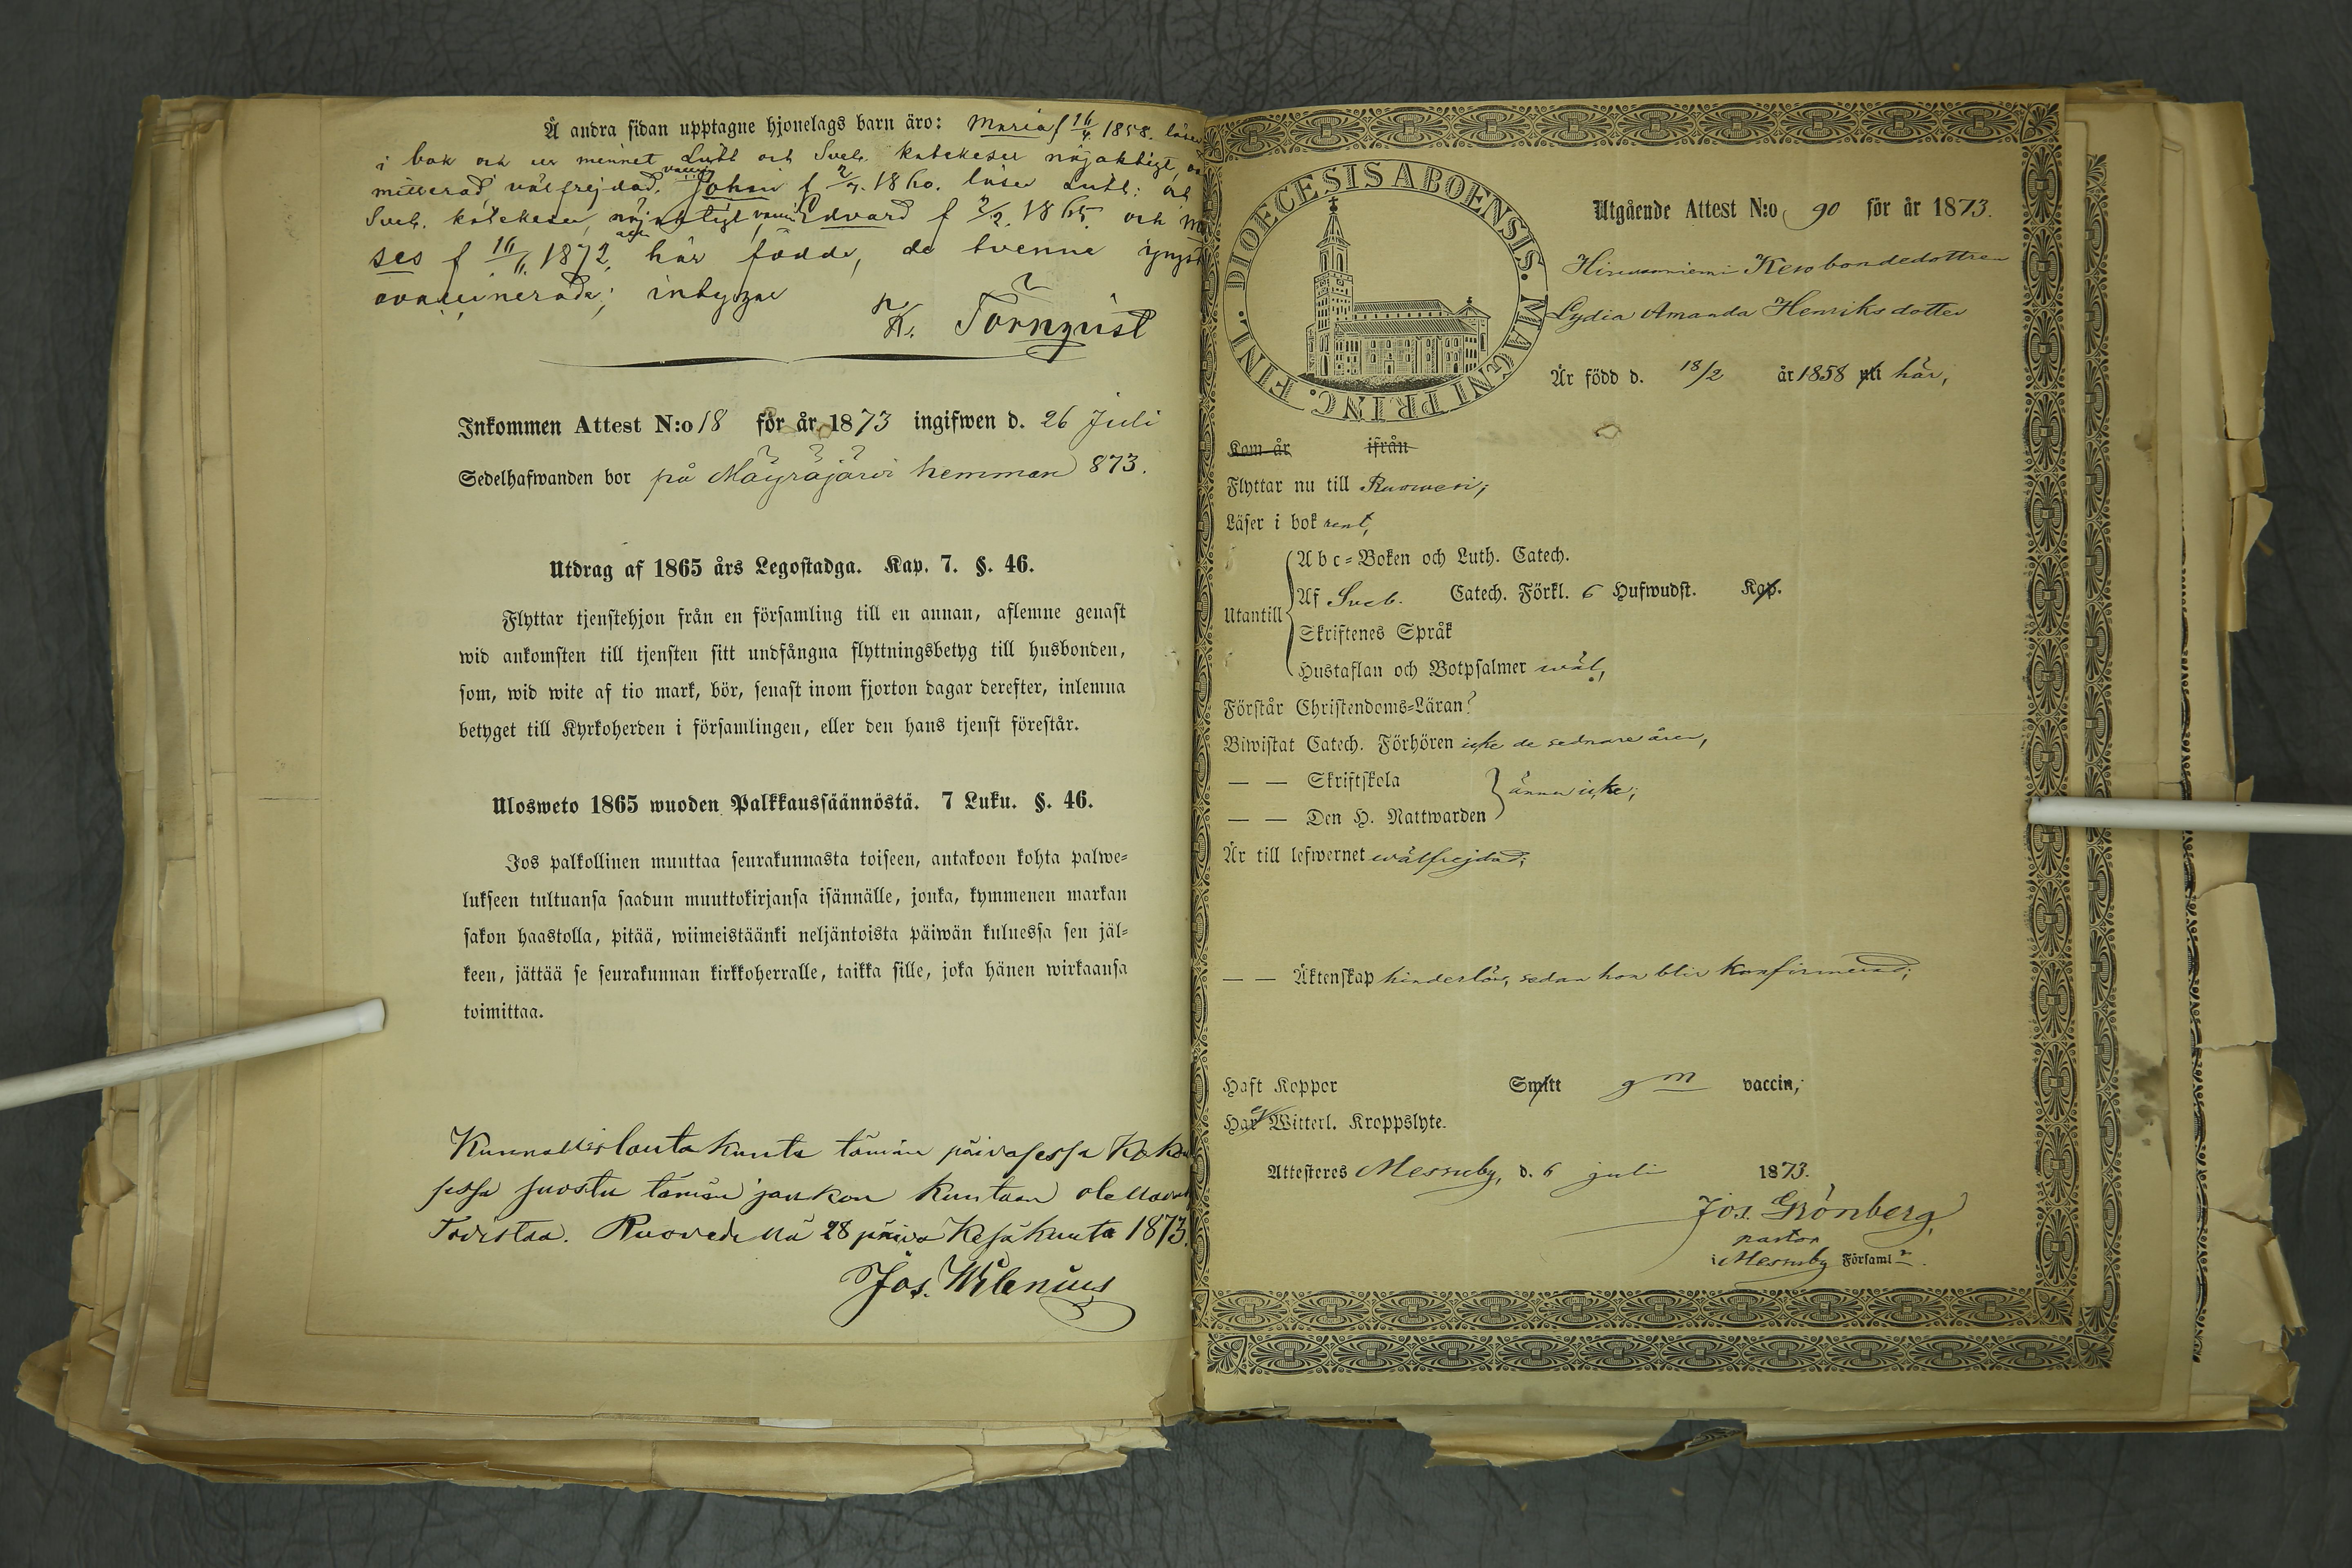 Å andra sidan upptagne hjonelags barn äro: Maria f 16/4 1858. läser
i bok och ur minnet Luth och Sveb. katekeser nöjaktigt,
välfrejdad, vaccin Johan f 2/7. 1860. läser Luth: och
Sveb. katekeser, nöjaktigt, vaccin Edvard f 2/2. 1865 och Mo
ses f 16/11. 1872, här födde, de tvenne yngst
ovaccinerade; intygar
K. Törnqvist
Inkommen Attest N:o 18 för år 1873 ingifwen d. 26 Juli
Sedelhafwanden bor på Mäyräjärvi hemman 873.
Utdrag af 1865 års Legostadga. Kap. 7. §. 46.
Flyttar tjenstehjon från en församling till en annan, aflemne genast
wid ankomsten till tjensten sitt undfångna flyttningsbetyg till husbonden,
som, wid wite af tio mark, bör, senast inom fjorton dagar derefter, inlemna
betyget till Kyrkoherden i församlingen, eller den hans tjenst förestår.
Ulosweto 1865 wuoden Palkkaussäännöstä. 7 Luku. §. 46.
Jos palkollinen muuttaa seurakunnasta toiseen, antakoon kohta palwe-
lukseen tultuansa saadun muuttokirjansa isännälle, jonka, kymmenen markan
sakon haastolla, pitää, wiimeistäänki neljäntoista päiwän kuluessa sen jäl-
keen, jättää se seurakunnan kirkkoherralle, taikka sille, joka hänen wirkaansa
toimittaa.
Kunnallislautakunta tämän päiväsessä Koko
sessa suostu tämän joukon kuntaan
Todistaa. Ruovedellä 28 päivä Kesäkuuta 1873.
Jos. Wilenius
DIOECESIS ABOENSIS. MAGNI PRINC. FINL.
Utgående Attest N:o 90 för år 1873.
Keso bondedottren
Lydia Amanda Henriksdotter
Är född d. 18/2 år 1858 uti här,
Kom år ifrån
Flyttar nu till Ruowesi;
Läser i bok rent,
Utantill
Abc-Boken och Luth. Catech.
Af Sveb. Catech. Förkl. 6 Hufwudst. Kap.
Skriftenes Språk
Hustaflan och Botpsalmer wäl,
Förstår Christendoms-Läran?
Biwistat Catech. Förhören icke de sednare åren,
— — Skriftskola
ännu icke;
— — Den H. Nattwarden
Är till lefwernet wälfrejdad;
— — Äktenskap hinderlös, sedan hon blir konfirmerad;
Haft Koppor Smitt gm vaccin,
Har Witterl. Kroppslyte.
Attesteres Messuby, d. 6 juli 1873.
Jos. Grönberg,
pastor
i Messuby Församl.